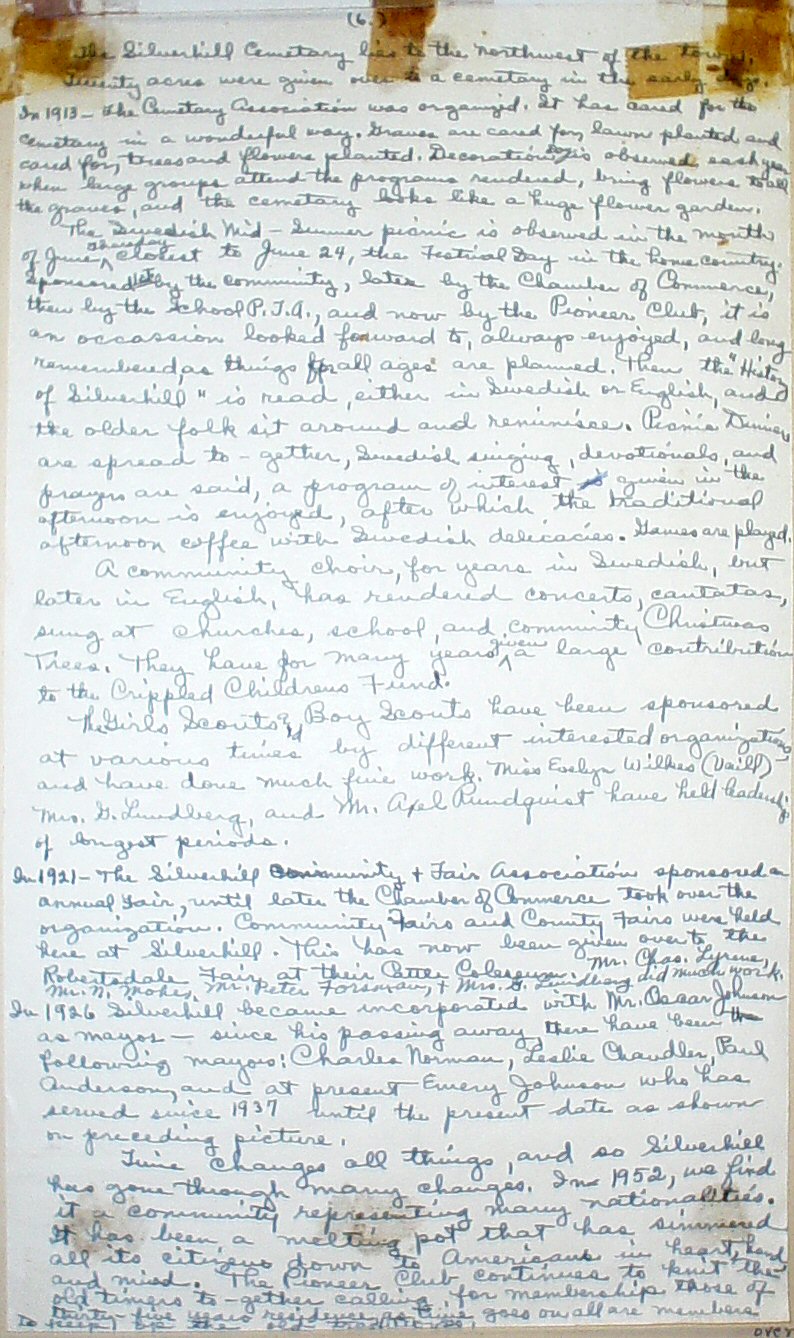 (6.)
The Silverhill Cemetary lies to the northwest of the town.
Twenty acres were given over to a cemetary in the early days.
In 1913 - the Cemetary Association was organized. It has cared for the
cemetary in a wonderful way. Graves are cared for, lawn planted and
cared for, trees and flowers planted. Decoration Day is observed each year
when large groups attend the programs rendered, bring flowers to all
the graves, and the cemetary looks like a huge flower garden.
The Swedish Mid-Summer picnic is observed in the month
of June, Thursday closest to June 24, the Festival Day in the home country.
Sponsored 1st by the community, later by the Chamber of Commerce,
then by the School P.T.A., and now by the Pioneer Club, it is
an occassion looked forward to, always enjoyed, and long
remembered, as things for all ages are planned. Then the "History
of Silverhill" is read, either in Swedish or English, and
the older folk sit around and reminisce. Picnic Dinners
are spread to-gether, Swedish singing, devotionals, and
prayers are said, a program of interest given in the
afternoon is enjoyed, after which the traditional
afternoon coffee with Swedish delicacies. Games are played.
A community choir, for years in Swedish, but
later in English, has rendered concerts, cantatas,
sung at churches, school, and community Christmas
Trees. They have for many years given a large contribution
to the Crippled Childrens Fund.
The Girls Scouts & Boy Scouts have been sponsored
at various times by different interested organizations,
and have done much fine work. Miss Evelyn Wilkes (Vaill)
Mrs. G. Lundberg, and Mr. Axel Rundquist have held leadership
of longest periods.
In 1921 - The Silverhill Community & Fair Association sponsored an
annual Fair, until later the Chamber of Commerce took over the
organization. Community Fairs and County Fairs were held
here at Silverhill. This has now been given over to the
Robertsdale Fair, at their Cattle Coleseum. Mr. Chas. Lyrene,
Mr. N. Mokes, Mr. Peter Forsman, & Mrs. G. Lundberg did much work.
In 1926 Silverhill became incorporated with Mr. Oscar Johnson
as mayor - since his passing away there have been the
following mayors: Charles Norman, Leslie Chandler, Paul
Anderson, and at present Emery Johnson who has
served since 1937 until the present date as shown
on preceding picture.
Time changes all things, and so Silverhill
has gone through many changes. In 1952, we find
it a community representing many nationalities.
It has been a melting pot that has simmered
all its citizens down to Americans in heart, hand
and mind. The Pioneer Club continues to knit the
old timers to-gether calling for membership those of
thirty-five years residence, as time goes on all are members
to keep up the old traditions.
over